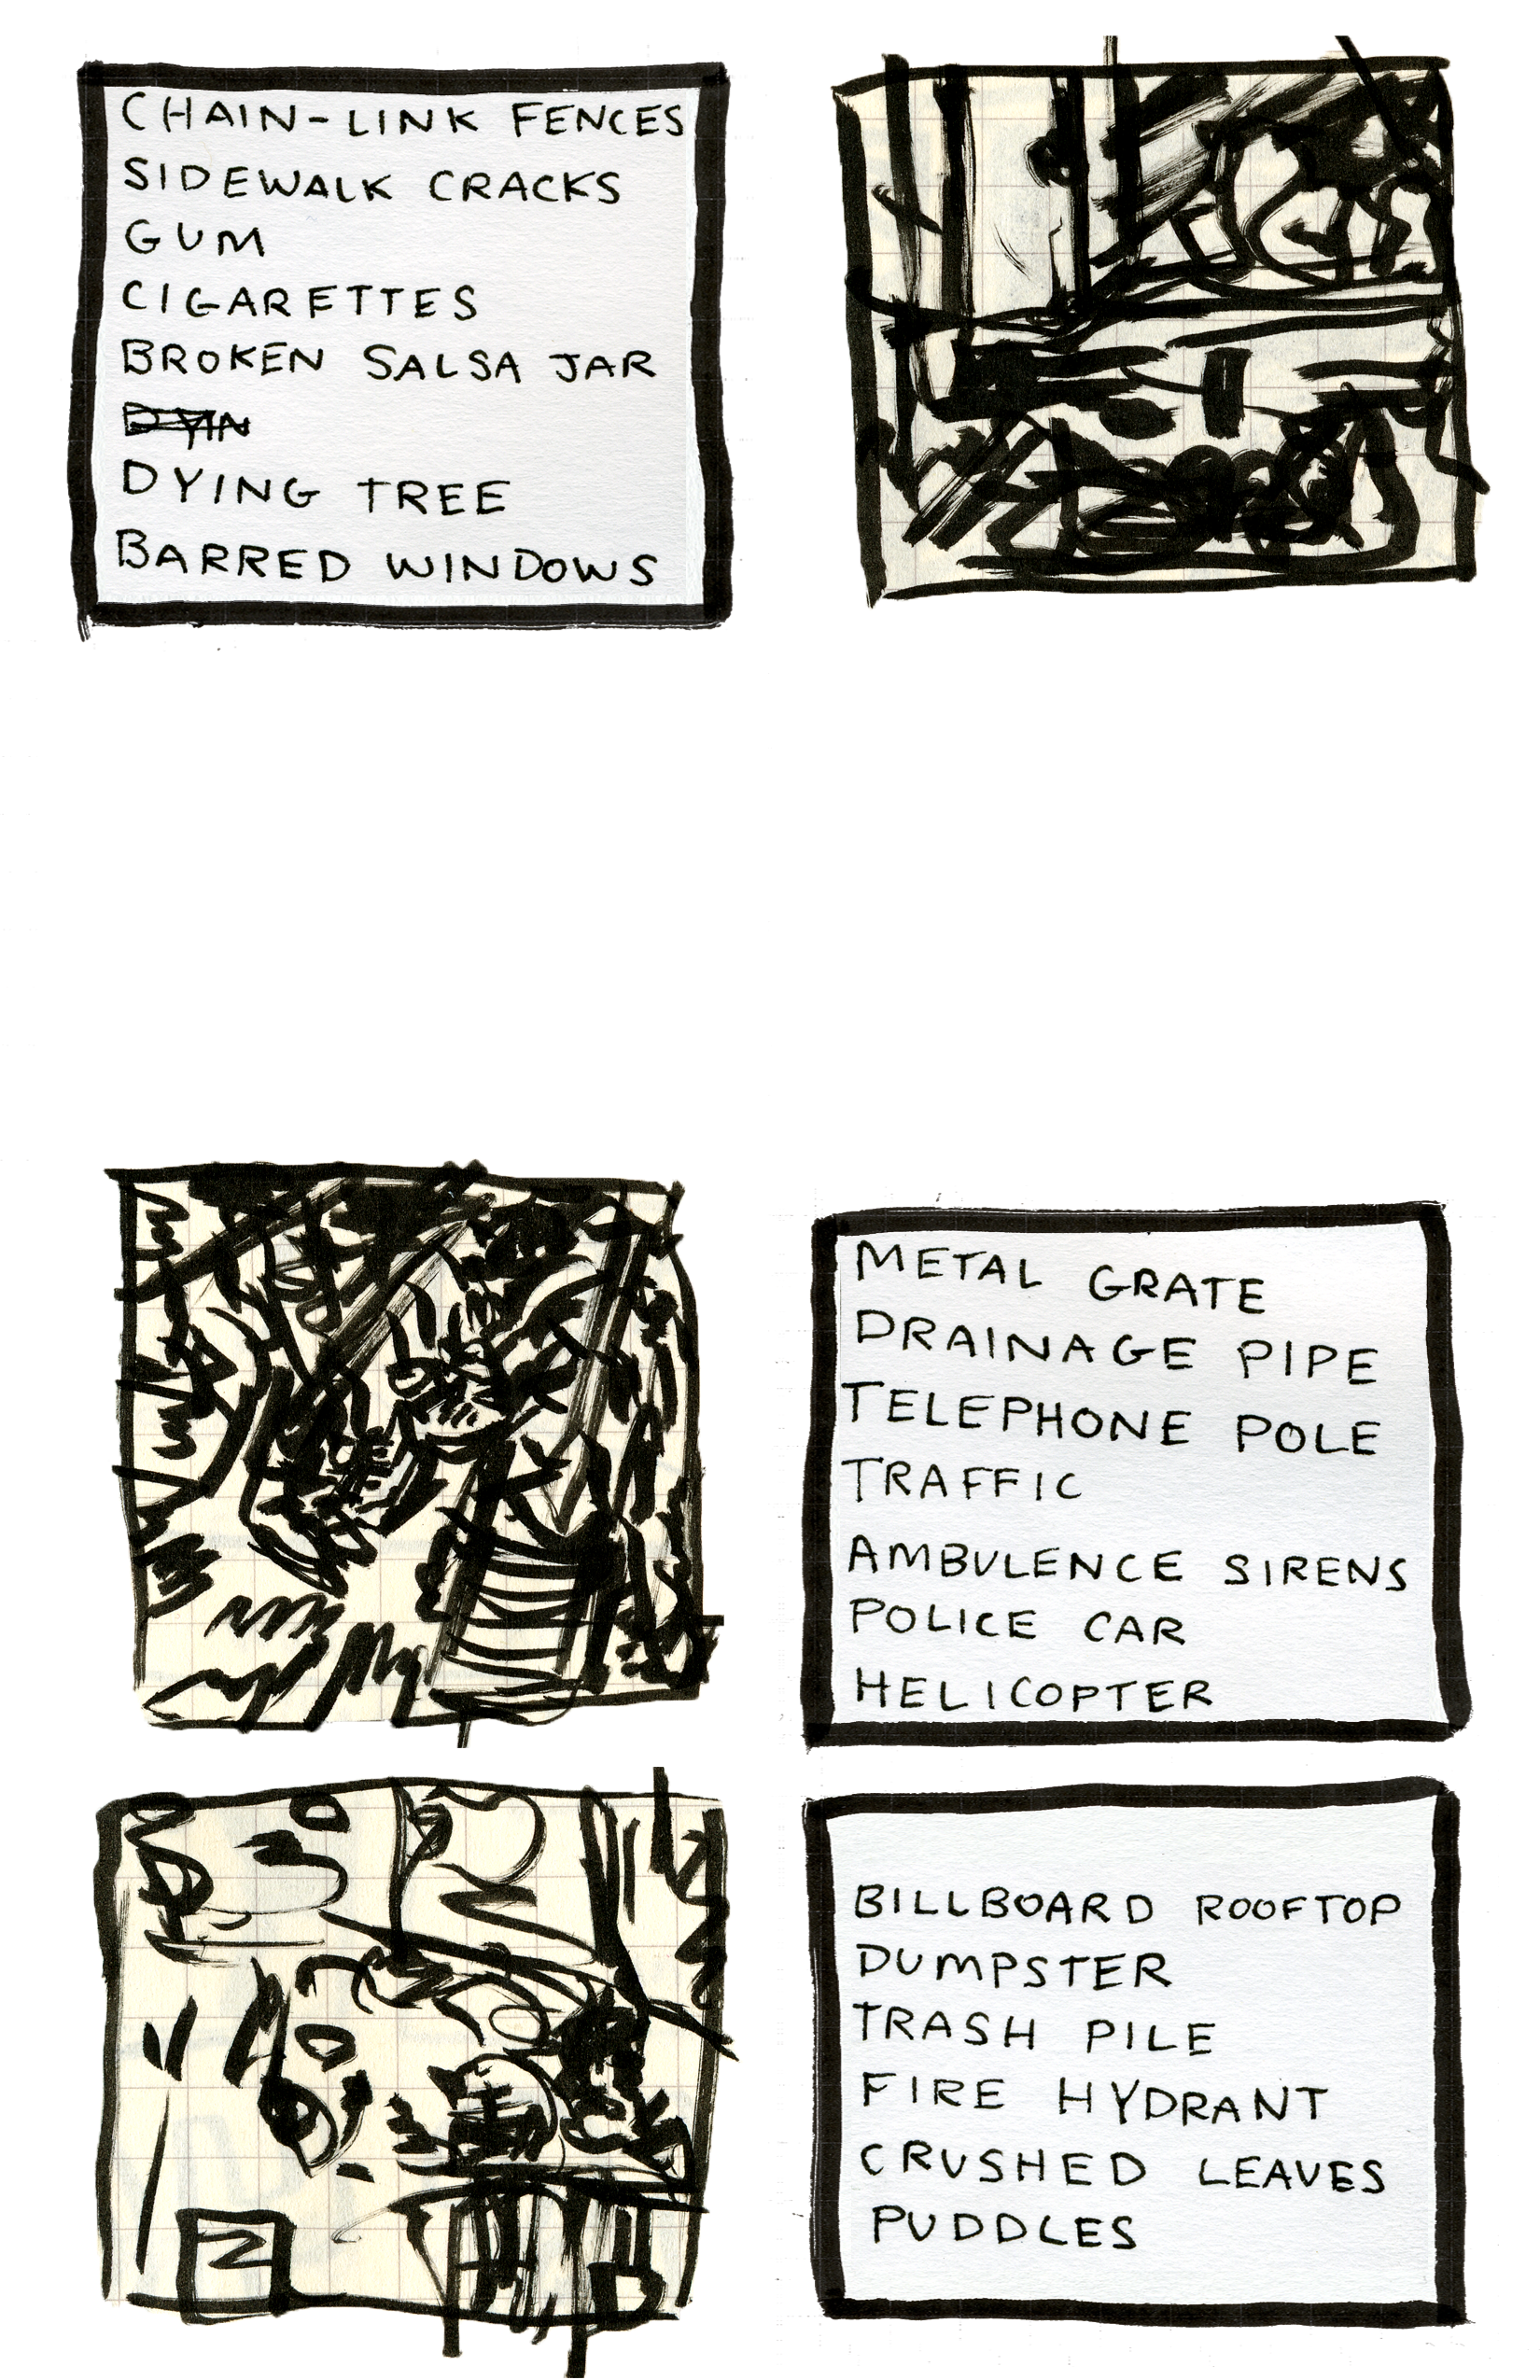 CHAIN-LINK FENCES
SIDEWALK CRACKS
GUM
CIGARETTES
BROKEN SALSA JAR
DYIN
DYING TREE
BARRED WINDOWS
METAL GRATE
DRAINAGE PIPE
TELEPHONE POLE
TRAFFIC
AMBULENCE SIRENS
POLICE CAR
HELICOPTER
BILLBOARD ROOFTOP
DUMPSTER
TRASH PILE
FIRE HYDRANT
CRUSHED LEAVES
PUDDLES